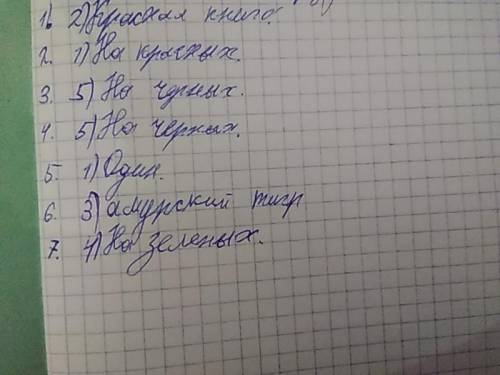 1. 2) Красная книга.
2. 1) На красных.
3. 5) На чрных.
4. 5) На черных.
5. 1) Один.
6. 3) амурский тигр
7. 4) На зеленых.